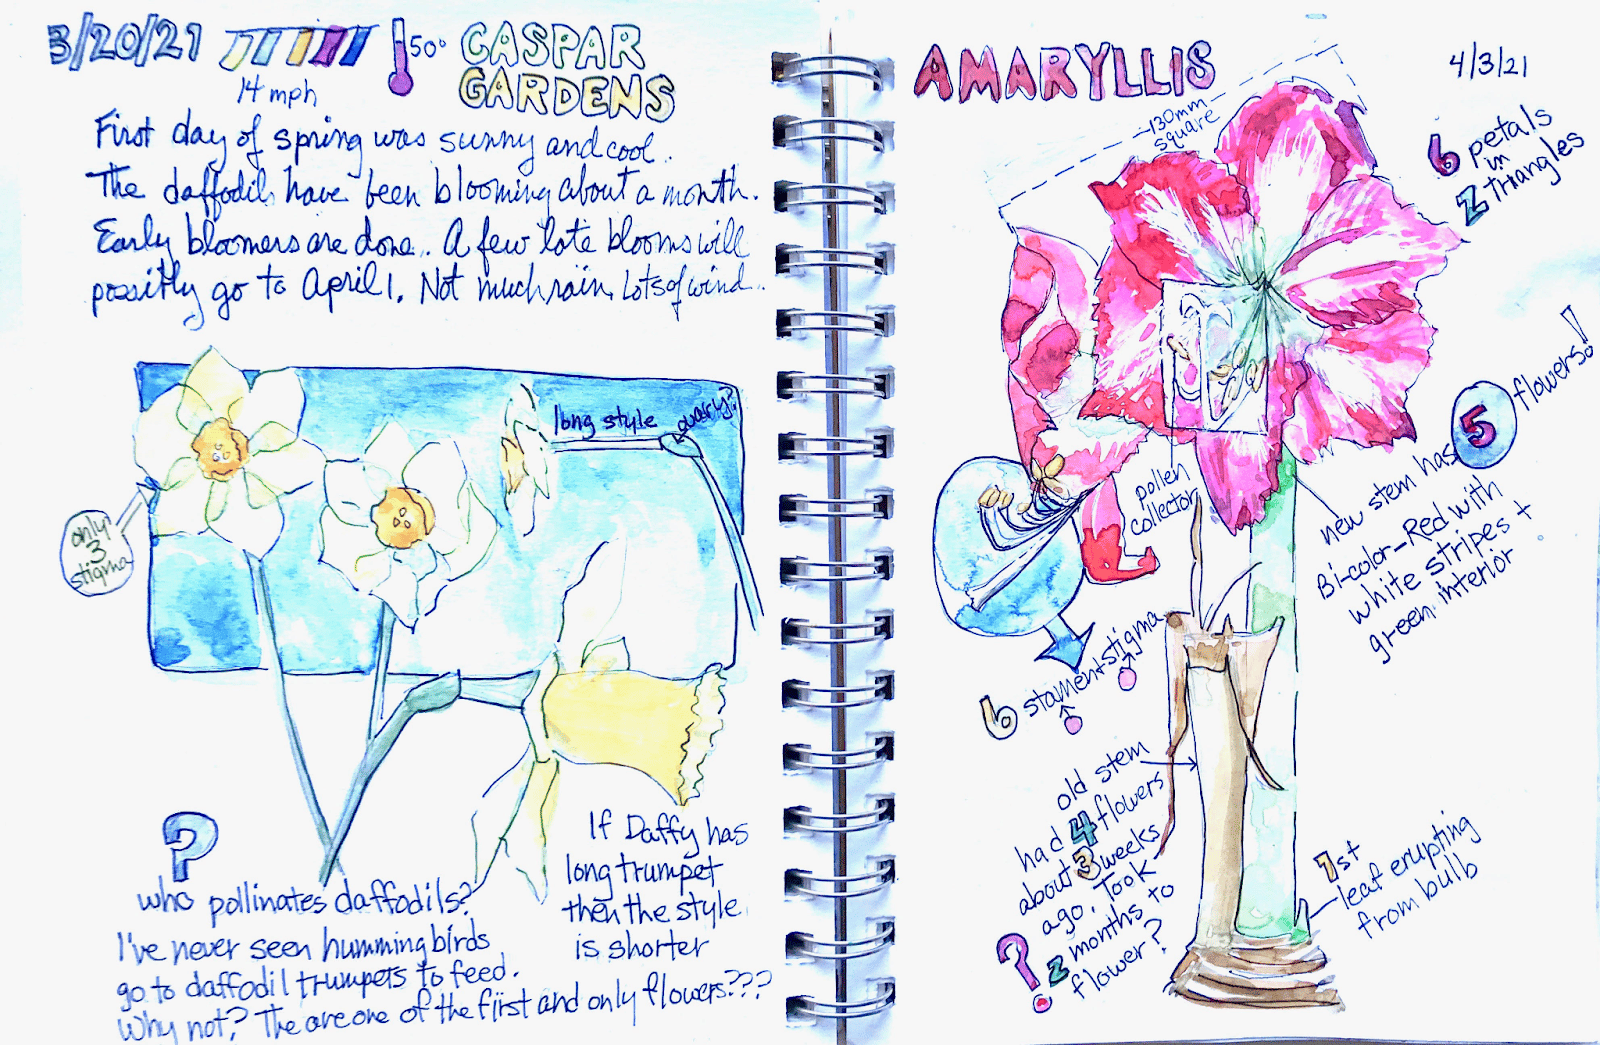 3/20/21
14 mph
50°
CASPAR
GARDENS
First day of spring was sunny and cool.
The daffodils have been blooming about a month.
Early bloomers are done.. A few late blooms will
possibly go to April 1. Not much rain. Lots of wind..
long style
ovary?
only
3
stigma
?
who pollinates daffodils?
I've never seen hummingbirds
go to daffodil trumpets to feed.
Why not? The are one of the first and only flowers???
If Daffy has
long trumpet
then the style
is shorter
AMARYLLIS
4/3/21
~130mm
square
6 petals
in
2 triangles
5 flowers!
new stem has
Bi-color-Red with
white stripes +
green interior
pollen
collector
6 stamen + stigma
old stem
had 4 flowers
about 3 weeks
ago. Took
2 months to
flower?
?
1st
leaf erupting
from bulb